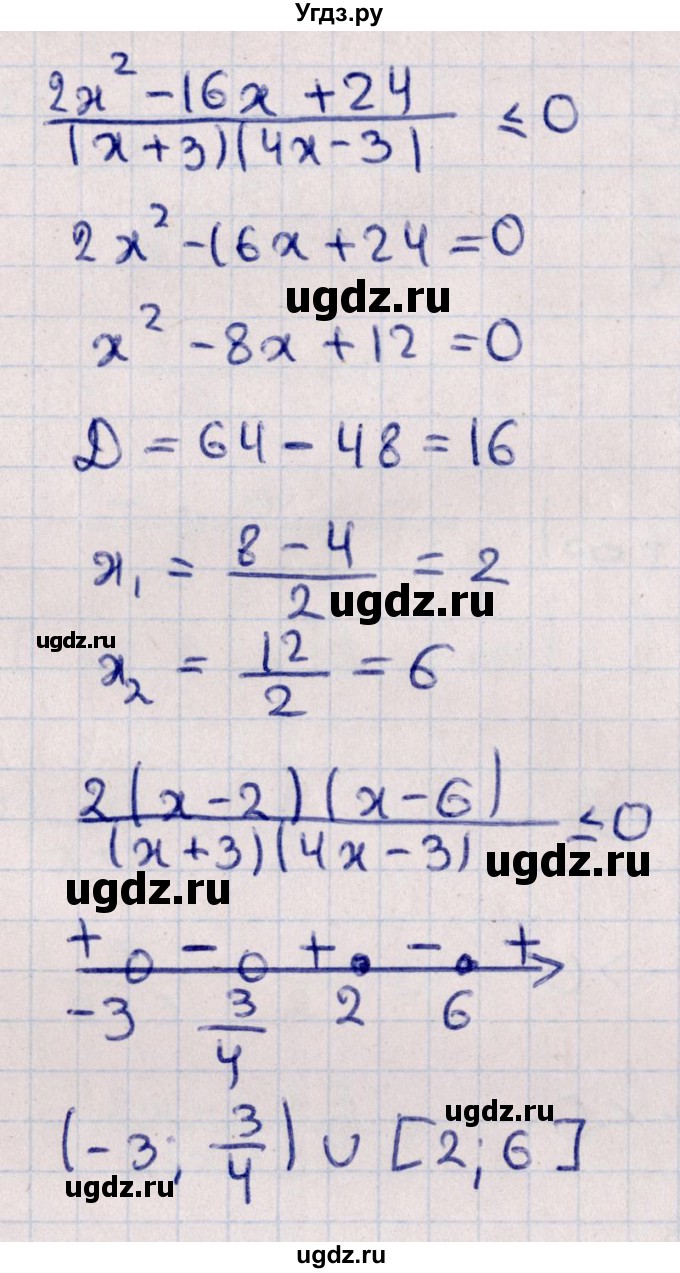 Угдз.ру
2x² - 16x + 24 / (x+3)(4x-3) ≤ 0
2x² - 16x + 24 = 0
ugdz.ru
x² - 8x + 12 = 0
D = 64 - 48 = 16
x₁ = 8 - 4 / 2 = 2
ugdz.ru
ugdz.ru
x₂ = 12 / 2 = 6
2(x-2)(x-6) / (x+3)(4x-3) ≤ 0
ugdz.ru
ugdz.ru
+ - + - +
-3 3/4 2 6
ugdz.ru
(-3; 3/4) ∪ [2; 6]
ugdz.ru
ugdz.ru